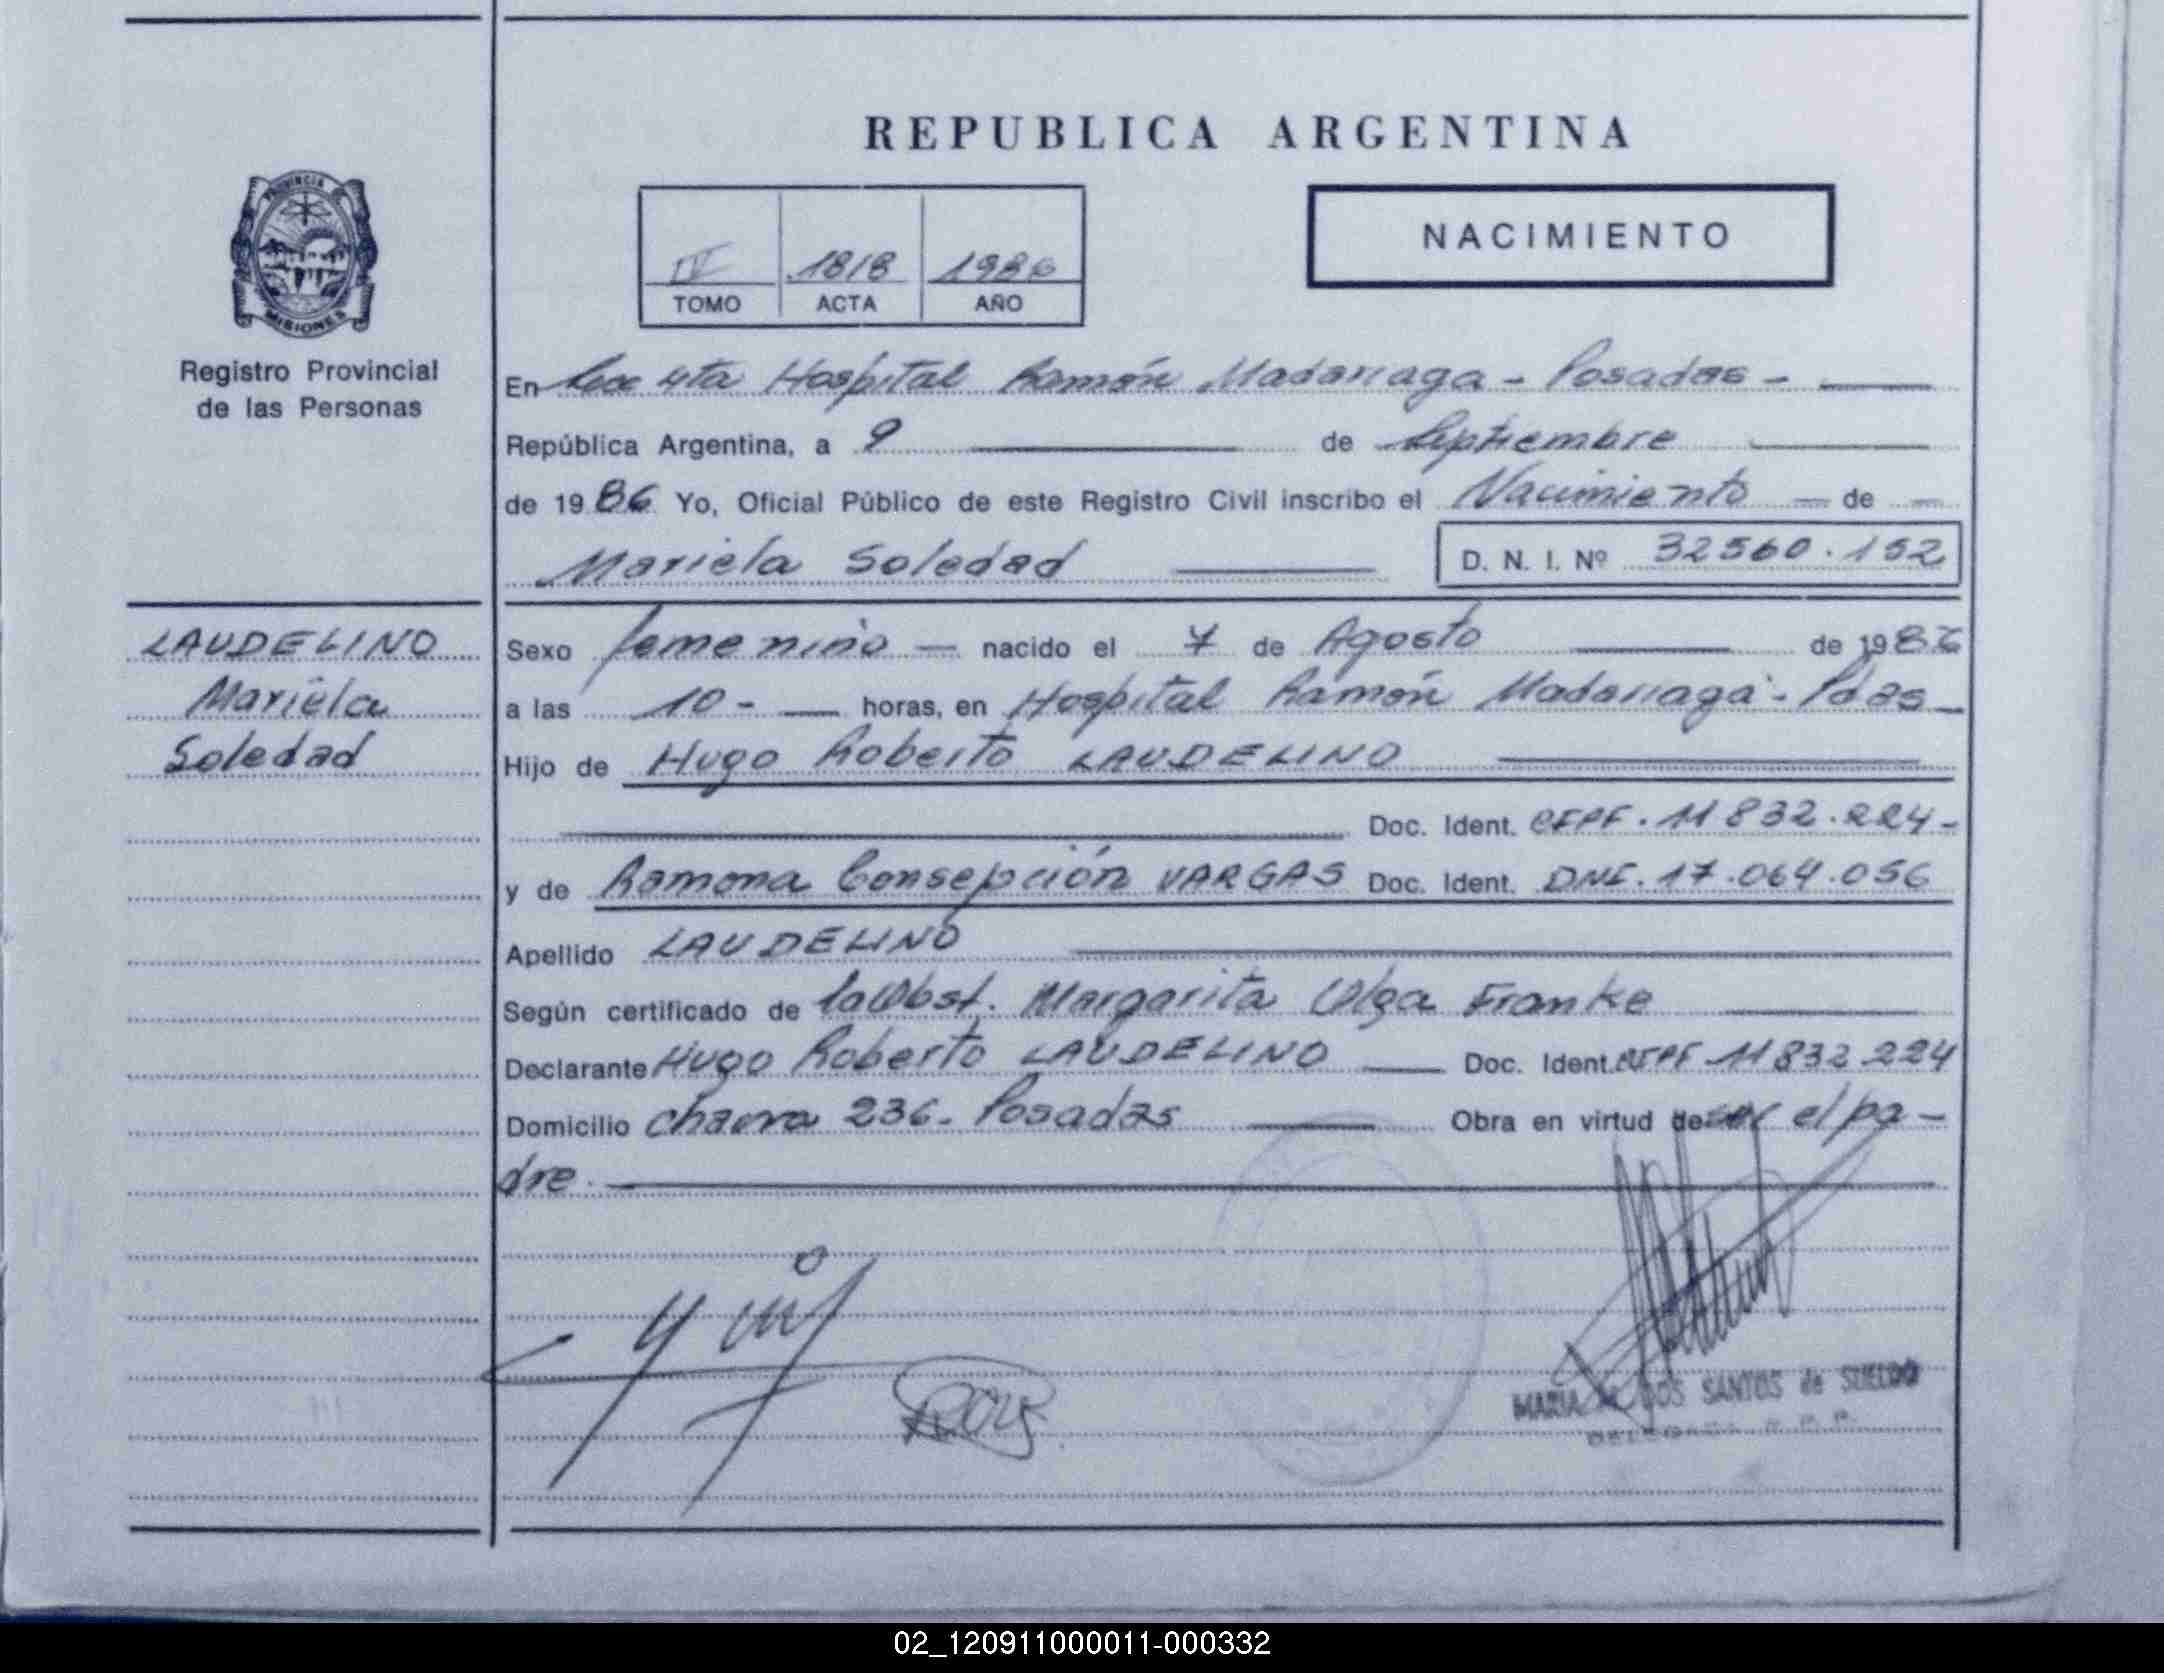 REPUBLICA ARGENTINA
PROVINCIA DE
MISIONES
Registro Provincial
de las Personas
IV 1818 1986
TOMO ACTA AÑO
NACIMIENTO
En Secc 4ta Hospital Ramón Madariaga - Posadas -
República Argentina, a 9 de Septiembre
de 1986 Yo, Oficial Público de este Registro Civil inscribo el Nacimiento de
Mariela Soledad
D. N. I. Nº 32560.152
LAUDELINO
Mariela
Soledad
Sexo femenino nacido el 7 de Agosto de 1986
a las 10- horas, en Hospital Ramón Madariaga - Pdas
Hijo de Hugo Roberto LAUDELINO
Doc. Ident. CIPF. 11832.224-
y de Ramona Consepción VARGAS Doc. Ident. DNI. 17.064.056
Apellido LAUDELINO
Según certificado de la Obst. Margarita Olga Franke
Declarante Hugo Roberto LAUDELINO Doc. Ident. CIPF 11832224
Domicilio chacra 236- Posadas Obra en virtud de ser el pa-
dre.
MARIA DOS SANTOS de SUELDO
DELEGADA R. P. P.
02_120911000011-000332